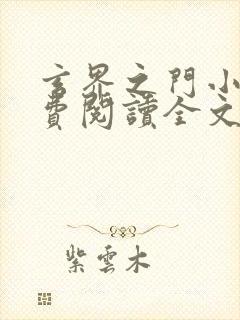 玄界之門小
費閱讀全文
紫雲木